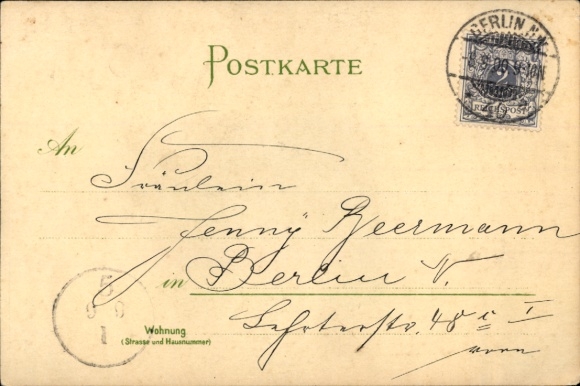 POSTKARTE
BERLIN N.W.
2
REICHSPOST
An
Fräulein
Jenny Beermann
in Berlin N.
Wohnung
(Strasse und Hausnummer)
Lehrterstr. 48 c I
vorn
5
9 9
1